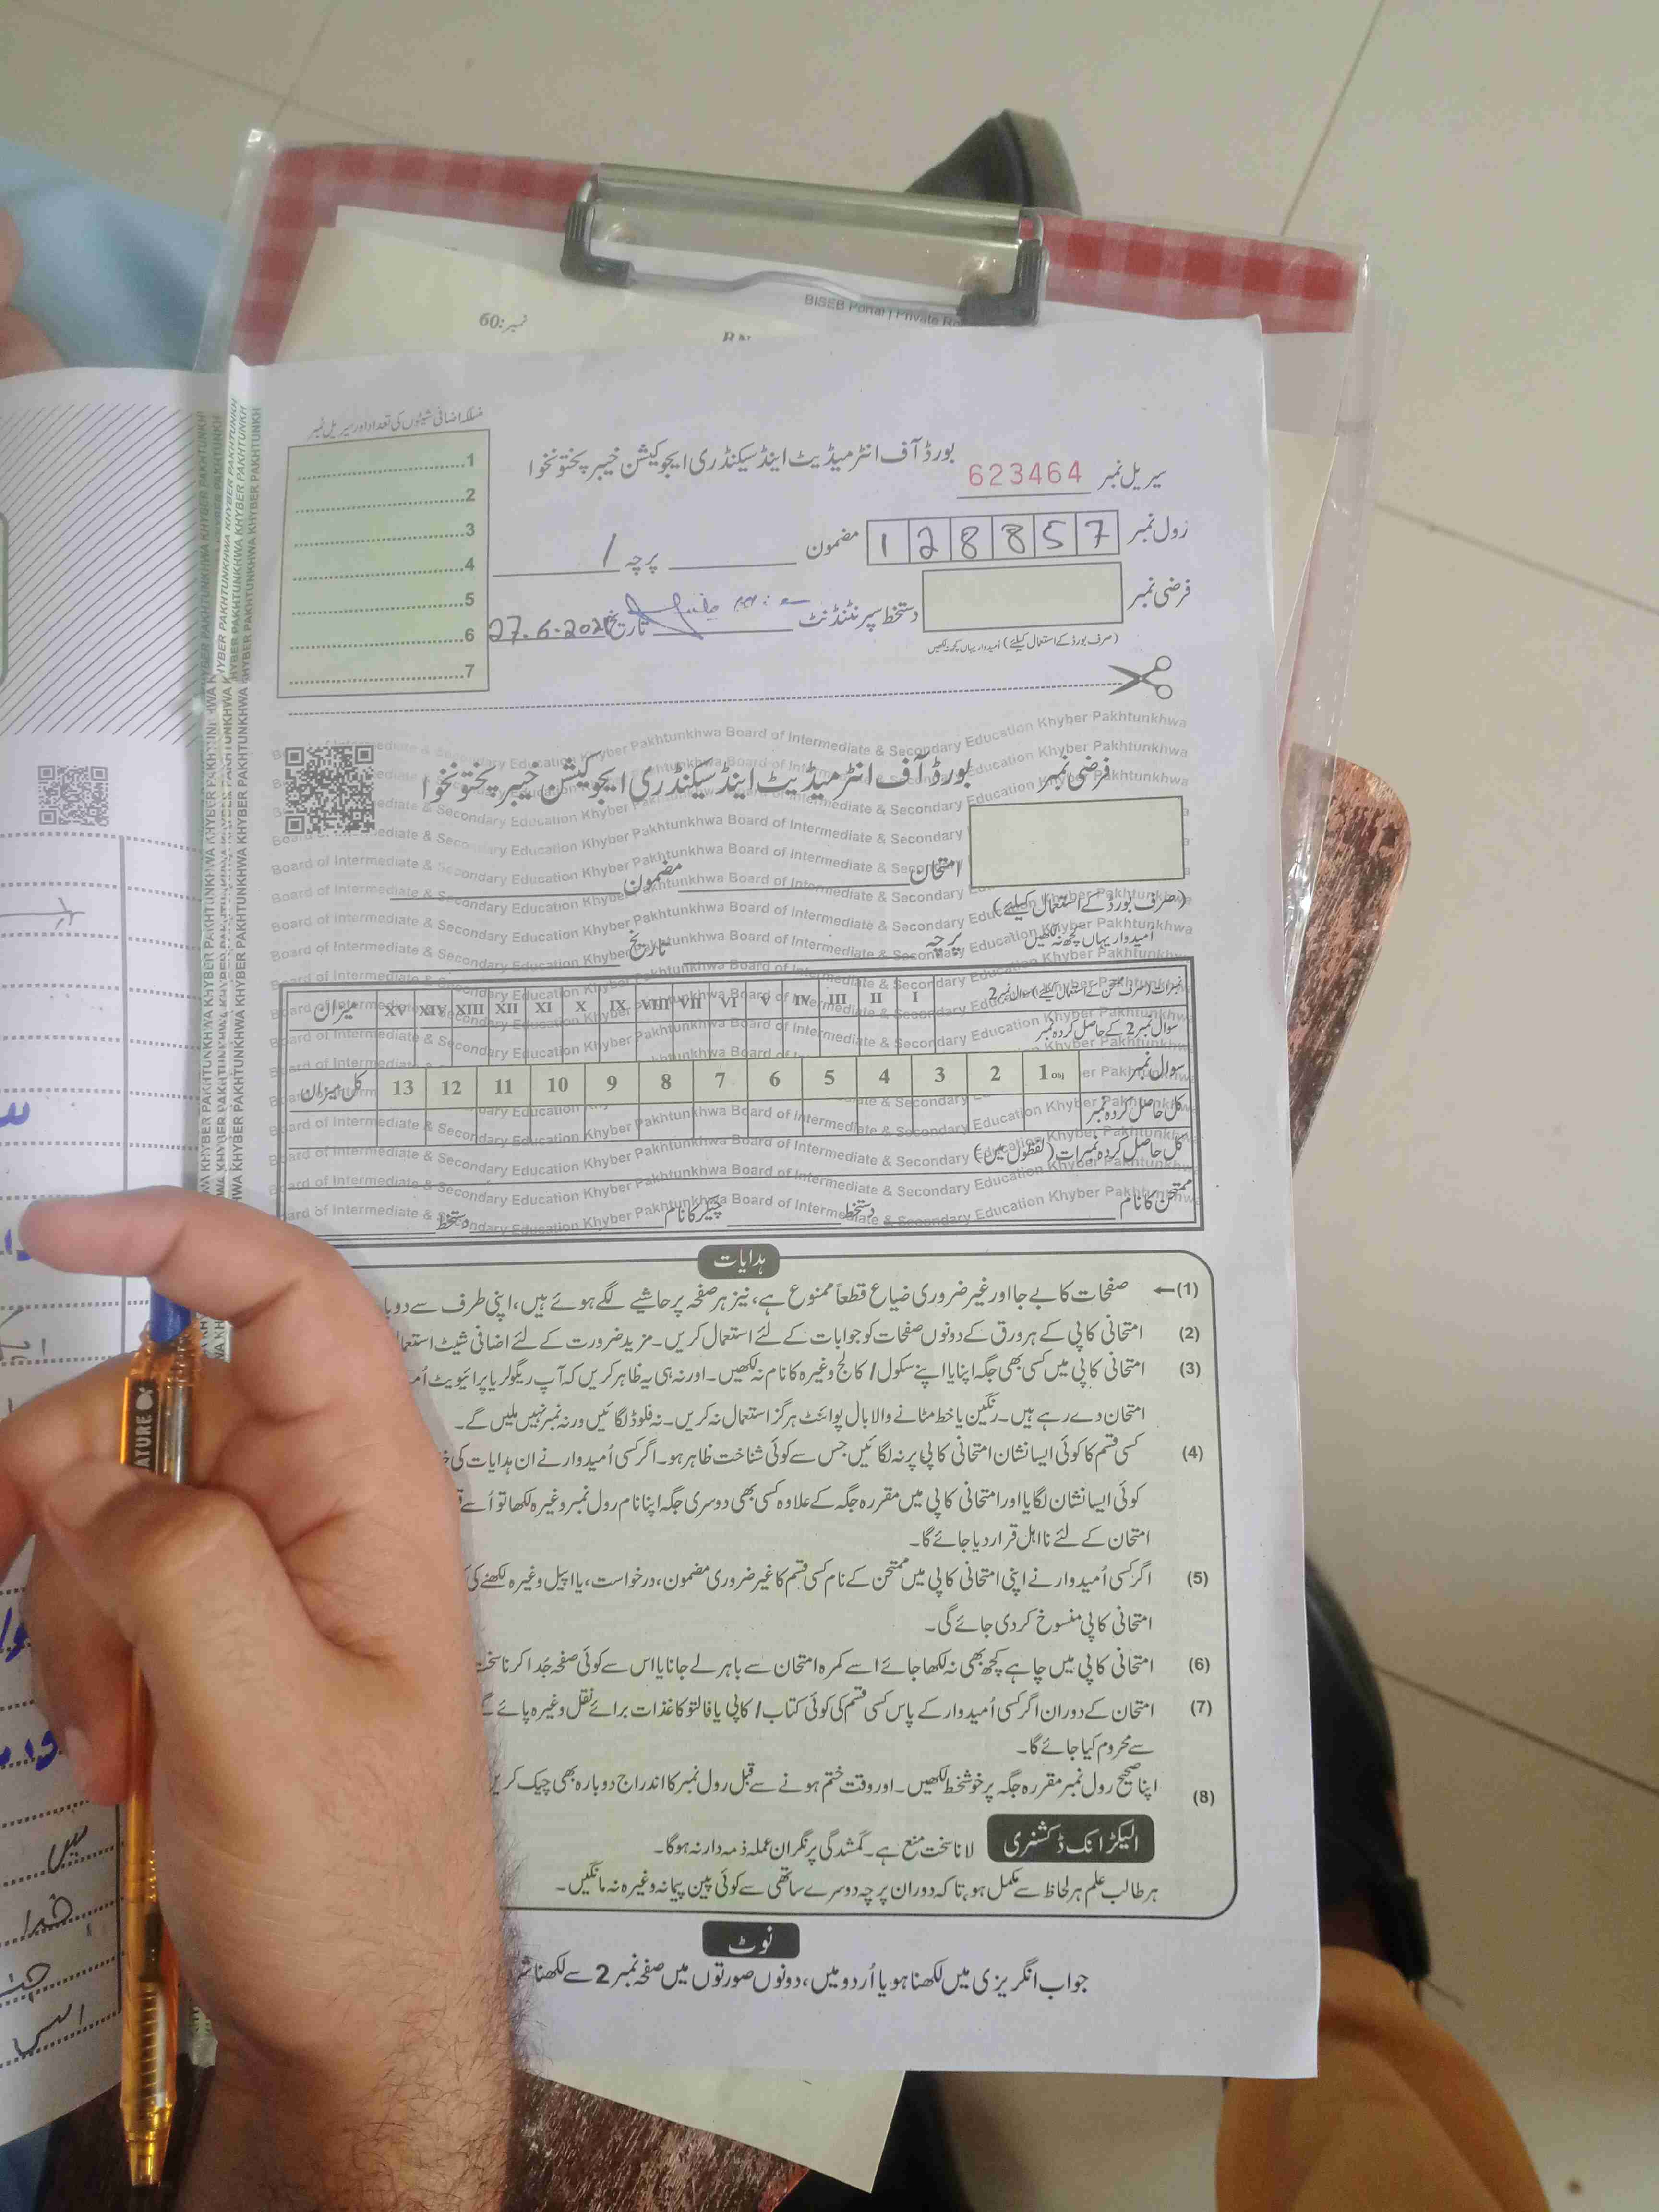 نمبر:60
BISEB Portal | Private
منسلکہ اضافی شیٹوں کی تعداد اور سیریل نمبر
1
2
3
4
5
6
7
بورڈ آف انٹرمیڈیٹ اینڈ سیکنڈری ایجوکیشن خیبر پختونخوا
سیریل نمبر 623464
رول نمبر 128857 مضمون پرچہ 1
فرضی نمبر
دستخط سپرنٹنڈنٹ تاریخ 27.6.202
(صرف بورڈ کے استعمال کیلئے) امیدوار یہاں کچھ نہ لکھیں
بورڈ آف انٹرمیڈیٹ اینڈ سیکنڈری ایجوکیشن خیبر پختونخوا
فرضی نمبر
امتحان مضمون
(صرف بورڈ کے استعمال کیلئے)
امیدوار یہاں کچھ نہ لکھیں
پرچہ تاریخ
نمبرات (صرف ممتحن کے استعمال کیلئے) سوال نمبر 2 I II III IV V VI VII VIII IX X XI XII XIII XIV XV میزان
سوال نمبر 2 کے حاصل کردہ نمبر
سوال نمبر 1 Obj 2 3 4 5 6 7 8 9 10 11 12 13 کل میزان
کل حاصل کردہ نمبر
کل حاصل کردہ نمبرات (لفظوں میں)
ممتحن کا نام دستخط چیکر کا نام دستخط
Board of Intermediate & Secondary Education Khyber Pakhtunkhwa
KHYBER PAKHTUNKHWA
ہدایات
(1) صفحات کا بے جا اور غیر ضروری ضیاع قطعاً ممنوع ہے، نیز ہر صفحہ پر حاشیے لگے ہوئے ہیں، اپنی طرف سے
(2) امتحانی کاپی کے ہر ورق کے دونوں صفحات کو جوابات کے لئے استعمال کریں۔ مزید ضرورت کے لئے اضافی شیٹ
(3) امتحانی کاپی میں کسی بھی جگہ اپنا یا اپنے سکول / کالج وغیرہ کا نام نہ لکھیں۔ اور نہ ہی یہ ظاہر کریں کہ آپ ریگولر یا پرائیویٹ
امتحان دے رہے ہیں۔ رنگین یا خط مٹانے والا بال پوائنٹ ہرگز استعمال نہ کریں۔ نہ فلوڈ لگائیں ورنہ نمبر نہیں ملیں گے۔
(4) کسی قسم کا کوئی ایسا نشان امتحانی کاپی پر نہ لگائیں جس سے کوئی شناخت ظاہر ہو۔ اگر کسی اُمیدوار نے ان ہدایات کی
کوئی ایسا نشان لگایا اور امتحانی کاپی میں مقررہ جگہ کے علاوہ کسی بھی دوسری جگہ اپنا نام رول نمبر وغیرہ لکھا تو اُسے
امتحان کے لئے نااہل قرار دیا جائے گا۔
(5) اگر کسی اُمیدوار نے اپنی امتحانی کاپی میں ممتحن کے نام کسی قسم کا غیر ضروری مضمون، درخواست، یا اپیل وغیرہ لکھنے کی
امتحانی کاپی منسوخ کر دی جائے گی۔
(6) امتحانی کاپی میں چاہے کچھ بھی نہ لکھا جائے اسے کمرہ امتحان سے باہر لے جانا یا اس سے کوئی صفحہ جُدا کرنا سخت
(7) امتحان کے دوران اگر کسی اُمیدوار کے پاس کسی قسم کی کوئی کتاب / کاپی یا فالتو کاغذات برائے نقل وغیرہ پائے
سے محروم کیا جائے گا۔
(8) اپنا صحیح رول نمبر مقررہ جگہ پر خوشخط لکھیں۔ اور وقت ختم ہونے سے قبل رول نمبر کا اندراج دوبارہ بھی چیک کریں
الیکٹرانک ڈکشنری لانا سخت منع ہے۔ گمشدگی پر نگران عملہ ذمہ دار نہ ہوگا۔
ہر طالب علم ہر لحاظ سے مکمل ہو، تاکہ دوران پرچہ دوسرے ساتھی سے کوئی پین پیمانہ وغیرہ نہ مانگیں۔
نوٹ
جواب انگریزی میں لکھنا ہو یا اُردو میں، دونوں صورتوں میں صفحہ نمبر 2 سے لکھنا